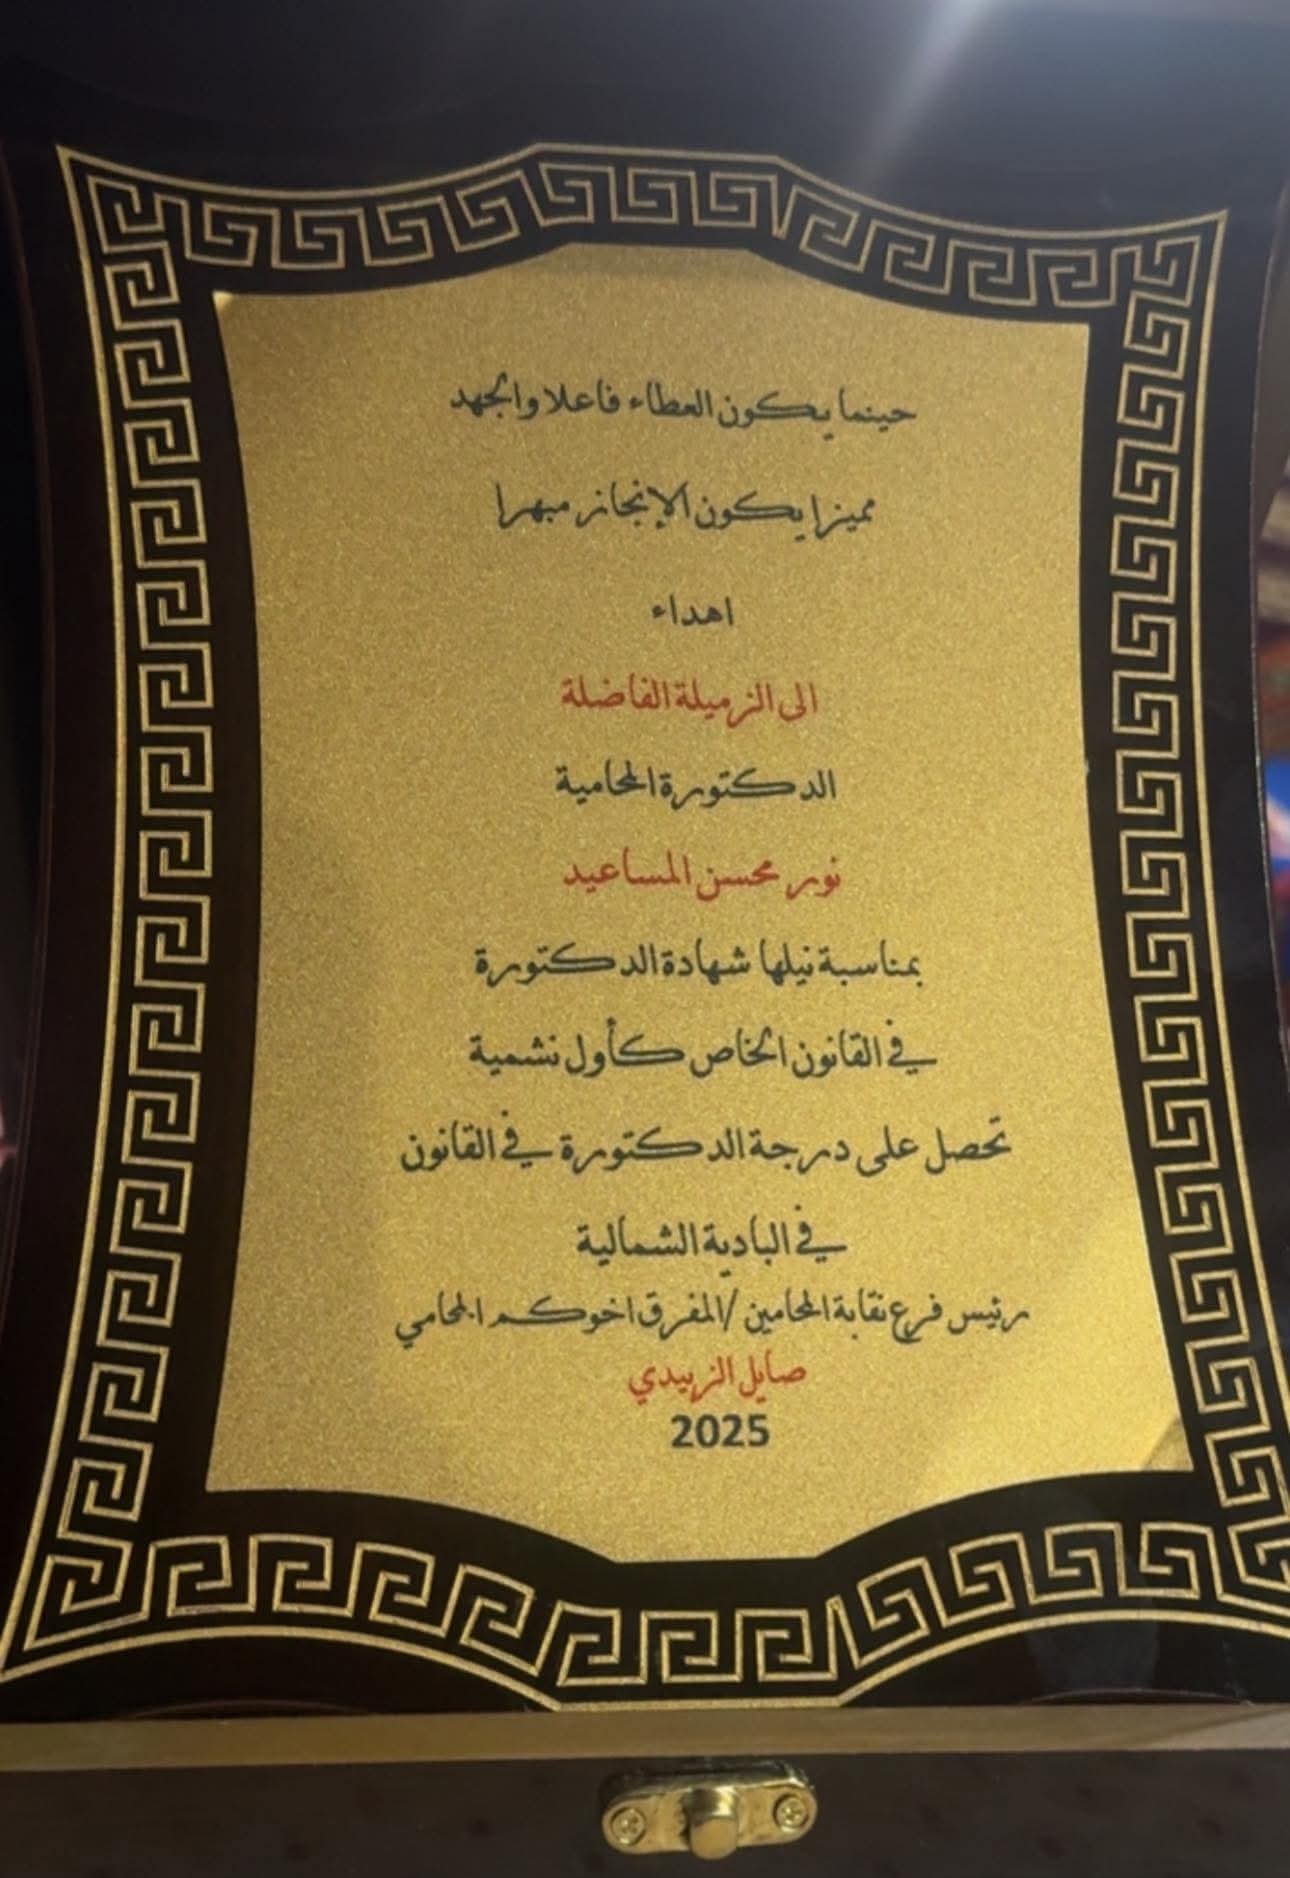 حينما يكون العطاء فاعلا والجهد
مميزا يكون الإنجاز مبهرا
اهداء
الى الزميلة الفاضلة
الدكتورة المحامية
نور محسن المساعيد
بمناسبة نيلها شهادة الدكتورة
في القانون الخاص كأول نشمية
تحصل على درجة الدكتورة في القانون
في البادية الشمالية
رئيس فرع نقابة المحامين /المفرق اخوكم المحامي
صايل الزبيدي
2025